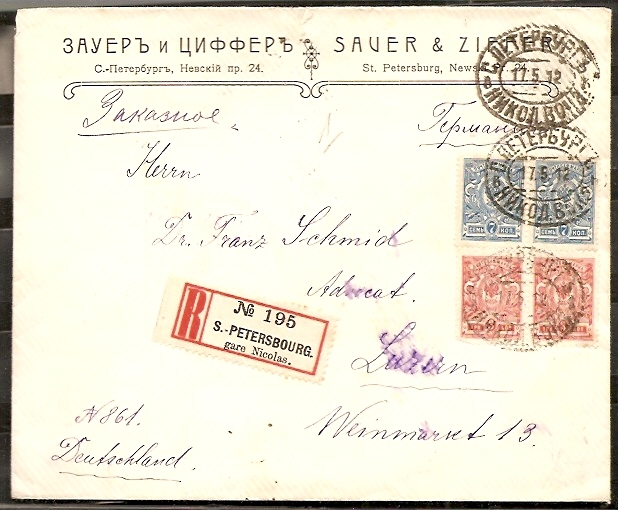 ЗАУЕРЪ и ЦИФФЕРЪ
С.-Петербургъ, Невскій пр. 24.
SAUER & ZIFFER
St. Petersburg, Newsky 24.
С.ПЕТЕРБУРГЪ
17.5.12
НИКОЛ. ВОКЗ.
Заказное
Германия
Herrn
С.ПЕТЕРБУРГЪ
17.5.12
НИКОЛ. ВОКЗ.
СЕМЬ 7 КОП.
СЕМЬ 7 КОП.
Dr. Franz Schmid
Advocat.
R
№ 195
S.-PETERSBOURG.
gare Nicolas.
Luzern
N 861.
Weinmarkt 13.
Deutschland.